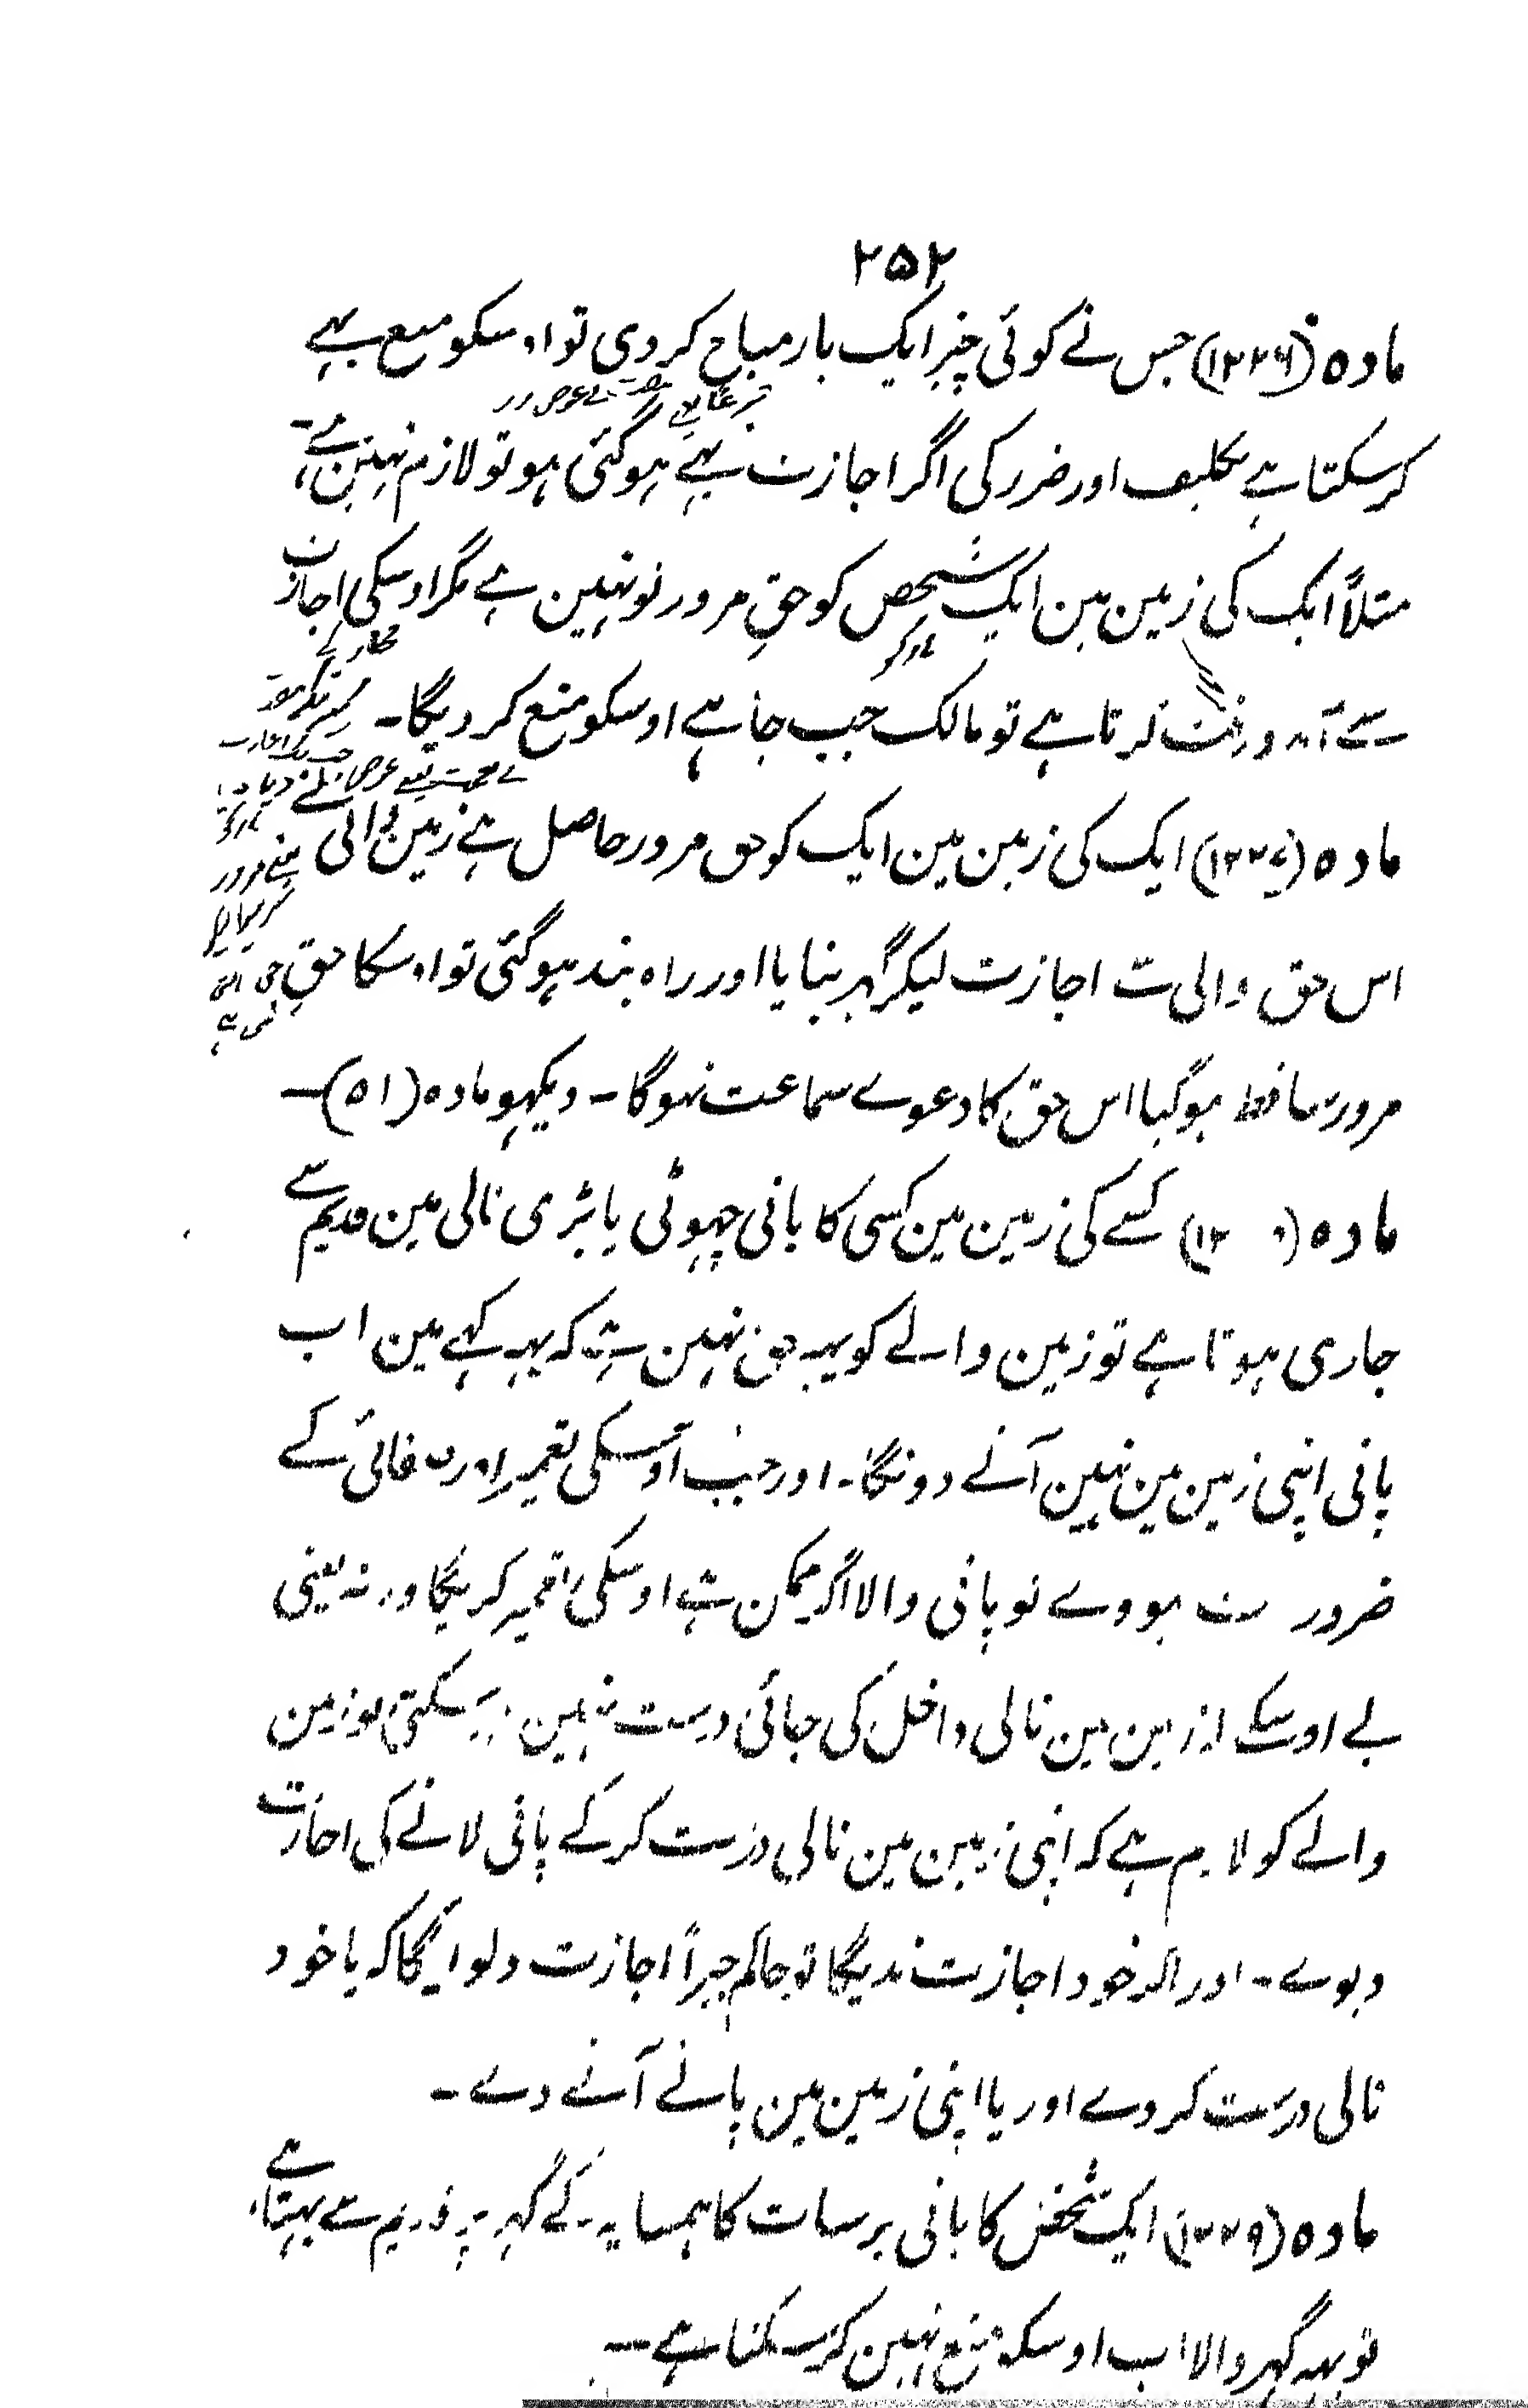 ۲۵۲
مادہ (۱۲۲۶) جس نے کوئی چیز ایک بار مباح کردی تو اوسکو منع بہے
کرسکتا ہے تکلیف اور ضرر کی اگر اجازت بہے ہوگئی ہو تو لازم نہین ہے۔
مثلاً ایک کی زمین مین ایک شخص کو حقِ مرور تو نہین ہے مگر اوسکی اجازت
سے آمد و رفت کرتا ہے تو مالک جب چاہے اوسکو منع کر دیگا۔
مادہ (۱۲۲۷) ایک کی زمین مین ایک کو حق مرور حاصل ہے زمین والی نے
اس حق والی سے اجازت لیکر گہر بنایا اور راہ بند ہوگئی تو اوسکا حقِ
مرور ساقط ہوگیا اس حق کا دعوے سماعت نہوگا ۔ دیکہو مادہ (۵۱)۔
مادہ (۱۲ ) کسے کی زمین مین کسی کا پانی چہوٹی یا بڑی نالی مین قدیم سے
جاری ہوتا ہے تو زمین والے کو یہہ حق نہین ہے کہ یہہ کہے مین اب
پانی اپنی زمین مین نہین آنے دونگا۔ اور جب اوسکی تعمیر اور صفائی کے
ضرورت ہووے تو پانی والا اگر ممکن ہے اوسکی تعمیر کریگا ورنہ یعنی
بے اوسکے زمین مین نالی داخل کی جائی درست نہین ہوسکتی تو زمین
والے کو لازم ہے کہ اپنی زمین مین نالی درست کرکے پانی لانے کی اجازت
دیوے ۔ اور اگر خود اجازت ندیگا تو حاکم جبراً اجازت دلوائیگا کہ یا خود
نالی درست کردے اور یا اپنی زمین مین پانے آنے دے ۔
مادہ (۱۲۲۹) ایک شخص کا پانی برسات کا ہمسایہ کے گہر پر قدیم سے بہتا ہے
تو یہہ گہر والا اب اوسکو منع نہین کرسکتا ہے ۔